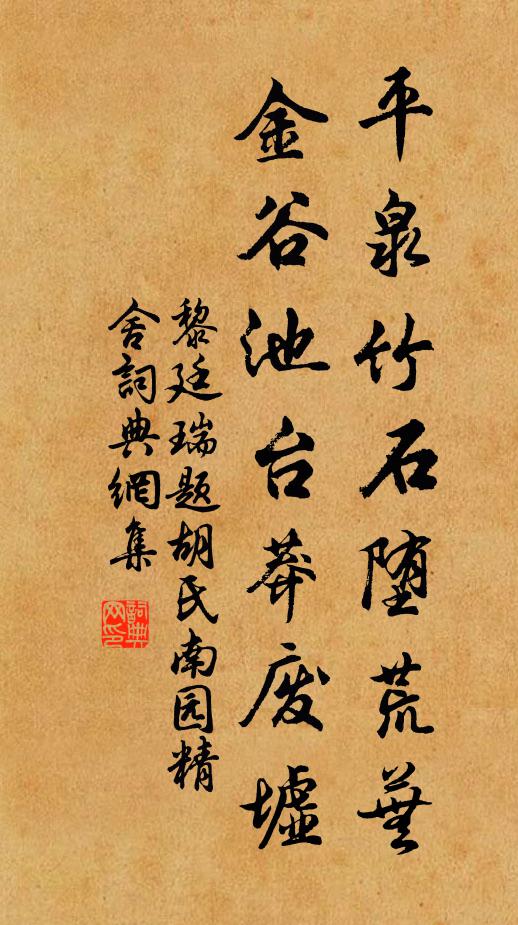 平泉竹石堕荒蕪
金谷池台莽废墟
黎廷瑞题胡氏南园精
舍詞典網集
詞典
网印